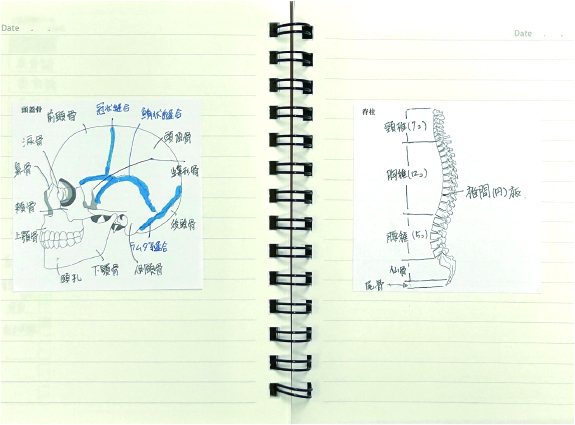 Date
頭蓋骨
前頭骨
冠状縫合
鱗状縫合
頭頂骨
涙骨
蝶形骨
鼻骨
頬骨
上顎骨
後頭骨
ラムダ縫合
下顎骨
側頭骨
Date
脊柱
頸椎(7コ)
胸椎(12コ)
椎間(円)板
腰椎(5コ)
仙骨
尾骨